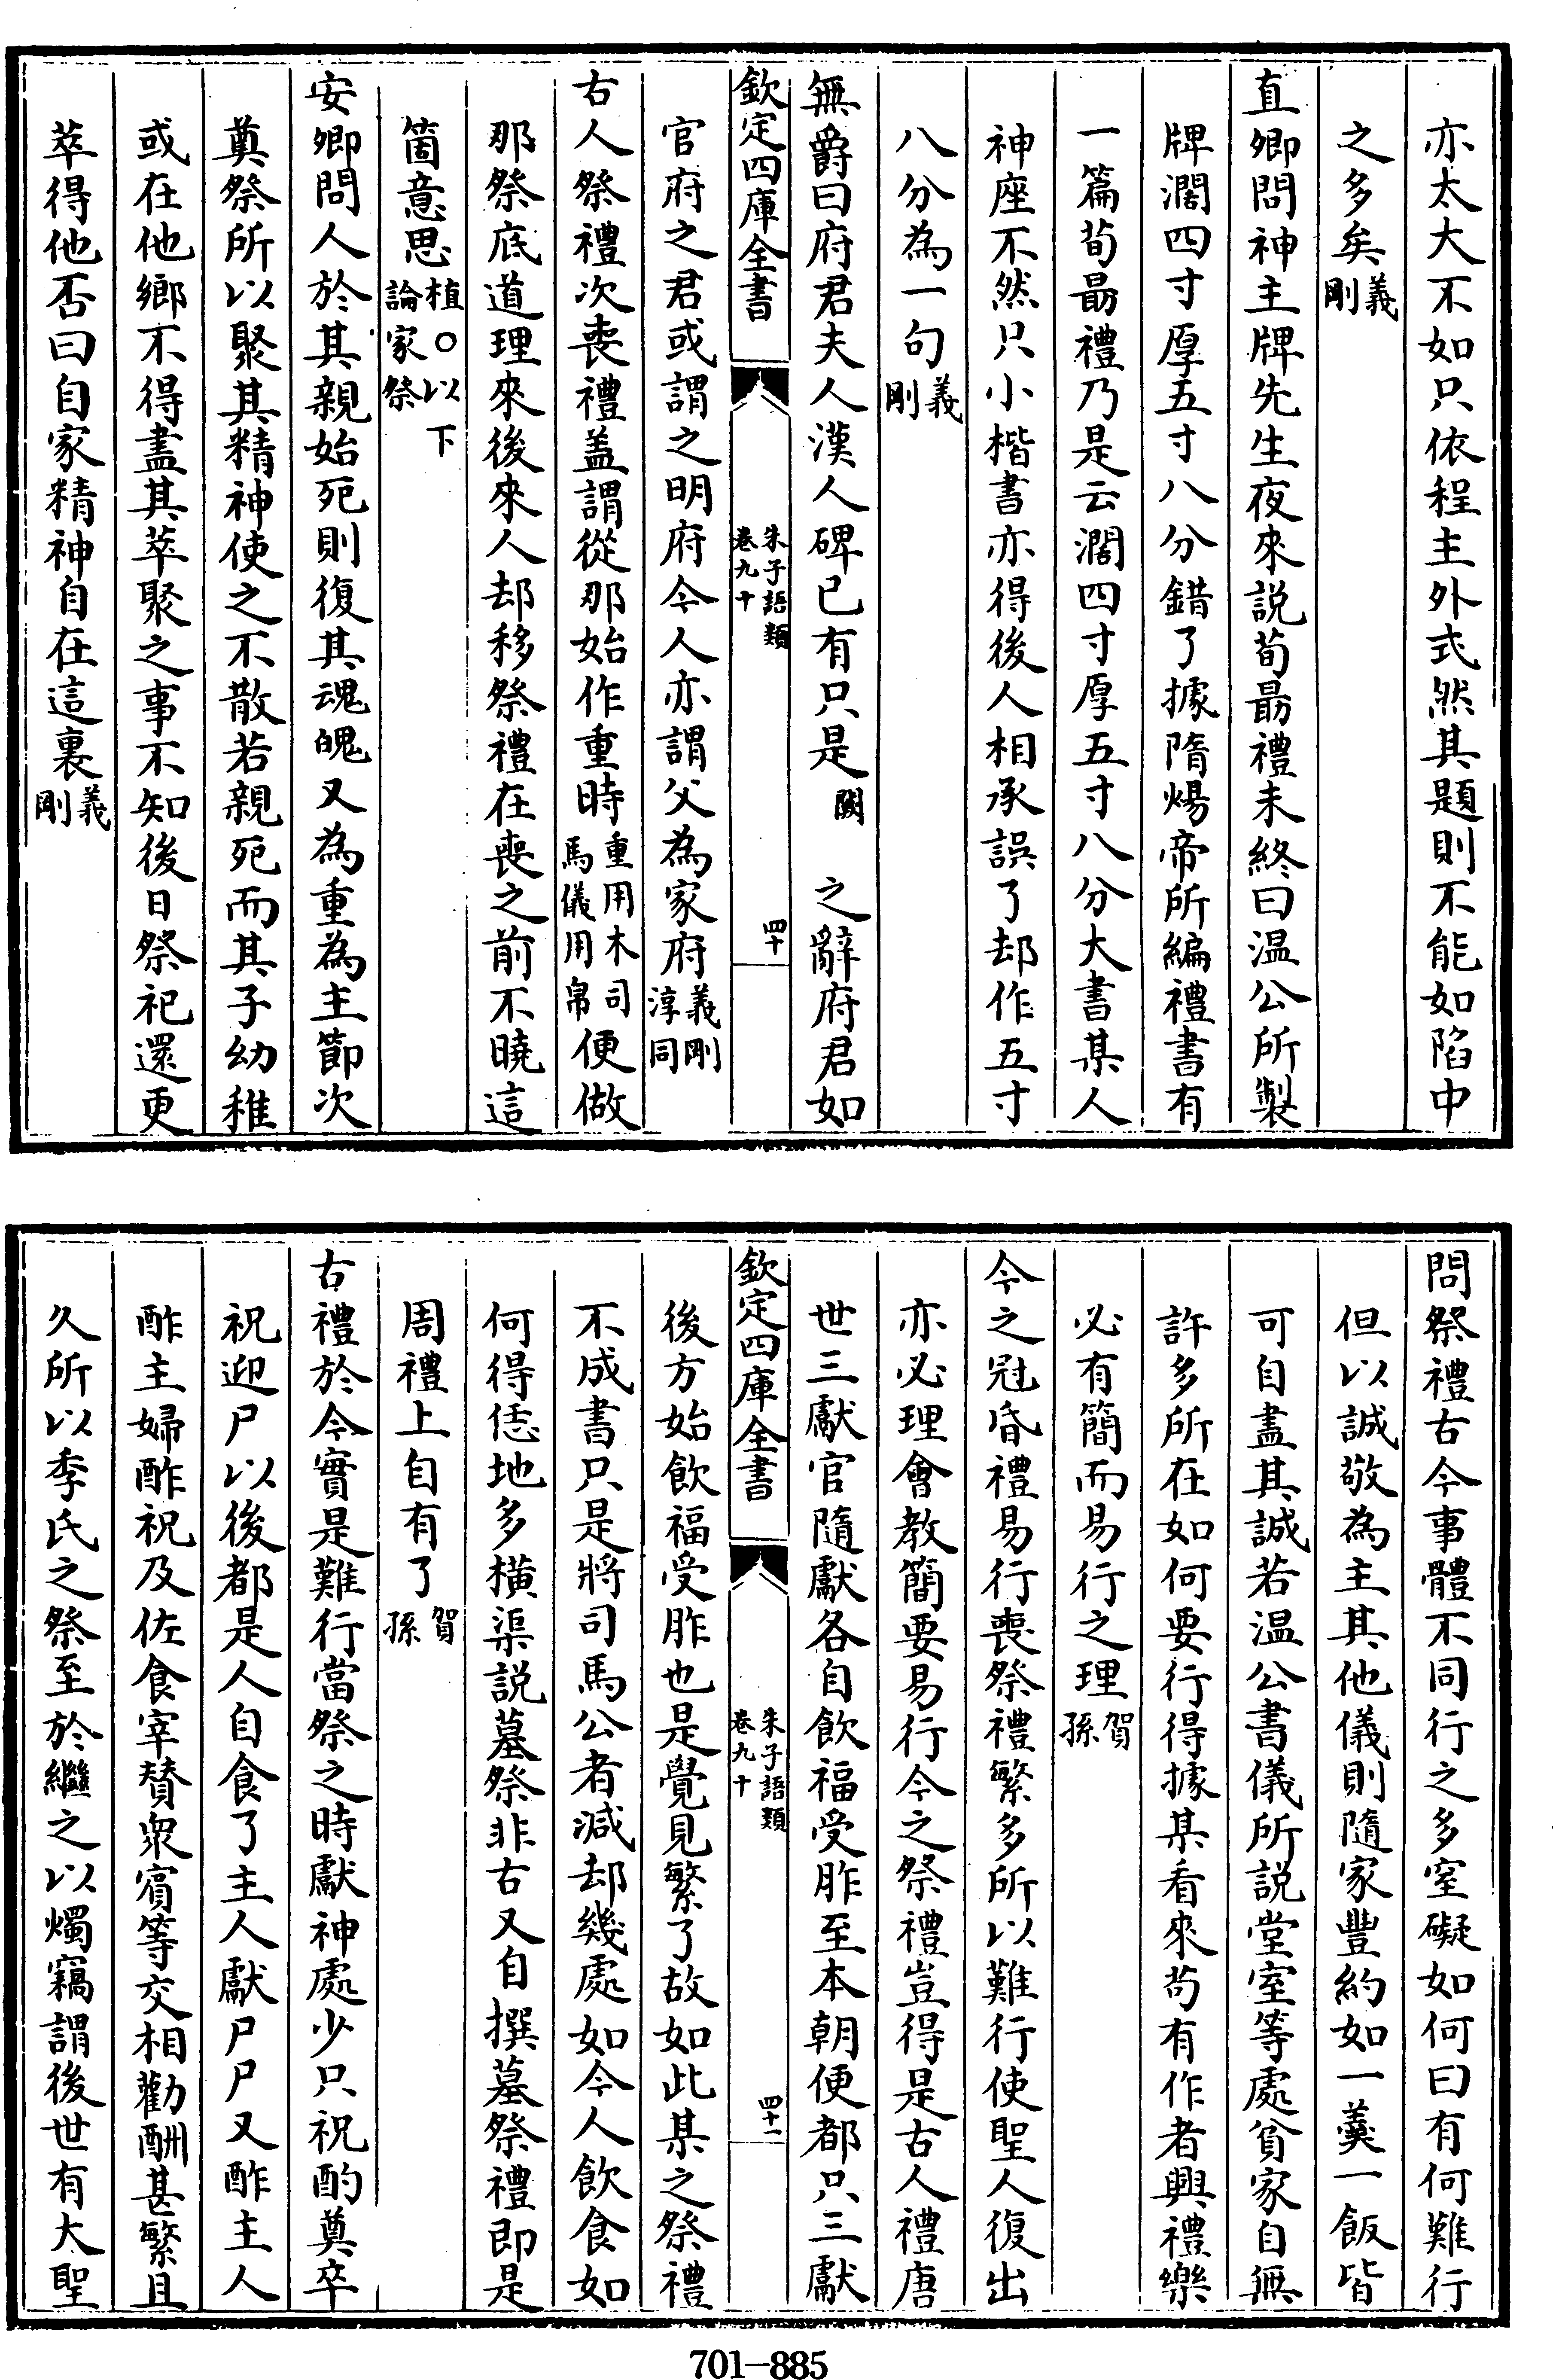 亦太大不如只依程主外式然其題則不能如陷中
之多矣義剛
直卿問神主牌先生夜來説荀勗禮未終曰温公所製
牌濶四寸厚五寸八分錯了據隋煬帝所編禮書有
一篇荀勗禮乃是云濶四寸厚五寸八分大書某人
神座不然只小楷書亦得後人相承誤了却作五寸
八分為一句義剛
無爵曰府君夫人漢人碑已有只是闕之辭府君如
欽定四庫全書
朱子語類
卷九十
四十
官府之君或謂之明府今人亦謂父為家府義剛淳同
古人祭禮次喪禮盖謂從那始作重時重用木司馬儀用帛便做
那祭底道理來後來人却移祭禮在喪之前不曉這
箇意思植○以下論家祭
安卿問人於其親始死則復其魂魄又為重為主節次
奠祭所以聚其精神使之不散若親死而其子幼稚
或在他鄉不得盡其萃聚之事不知後日祭祀還更
萃得他否曰自家精神自在這裏義剛
問祭禮古今事體不同行之多窒礙如何曰有何難行
但以誠敬為主其他儀則隨家豐約如一羮一飯皆
可自盡其誠若温公書儀所説堂室等處貧家自無
許多所在如何要行得據某看來苟有作者興禮樂
必有簡而易行之理賀孫
今之冠昏禮易行喪祭禮繁多所以難行使聖人復出
亦必理會教簡要易行今之祭禮豈得是古人禮唐
世三獻官隨獻各自飲福受胙至本朝便都只三獻
欽定四庫全書
朱子語類
卷九十
四十一
後方始飲福受胙也是覺見繁了故如此某之祭禮
不成書只是將司馬公者減却幾處如今人飲食如
何得恁地多橫渠説墓祭非古又自撰墓祭禮即是
周禮上自有了賀孫
古禮於今實是難行當祭之時獻神處少只祝酌奠卒
祝迎尸以後都是人自食了主人獻尸尸又酢主人
酢主婦酢祝及佐食宰贊衆賓等交相勸酬甚繁且
久所以季氏之祭至於繼之以燭竊謂後世有大聖
701—885